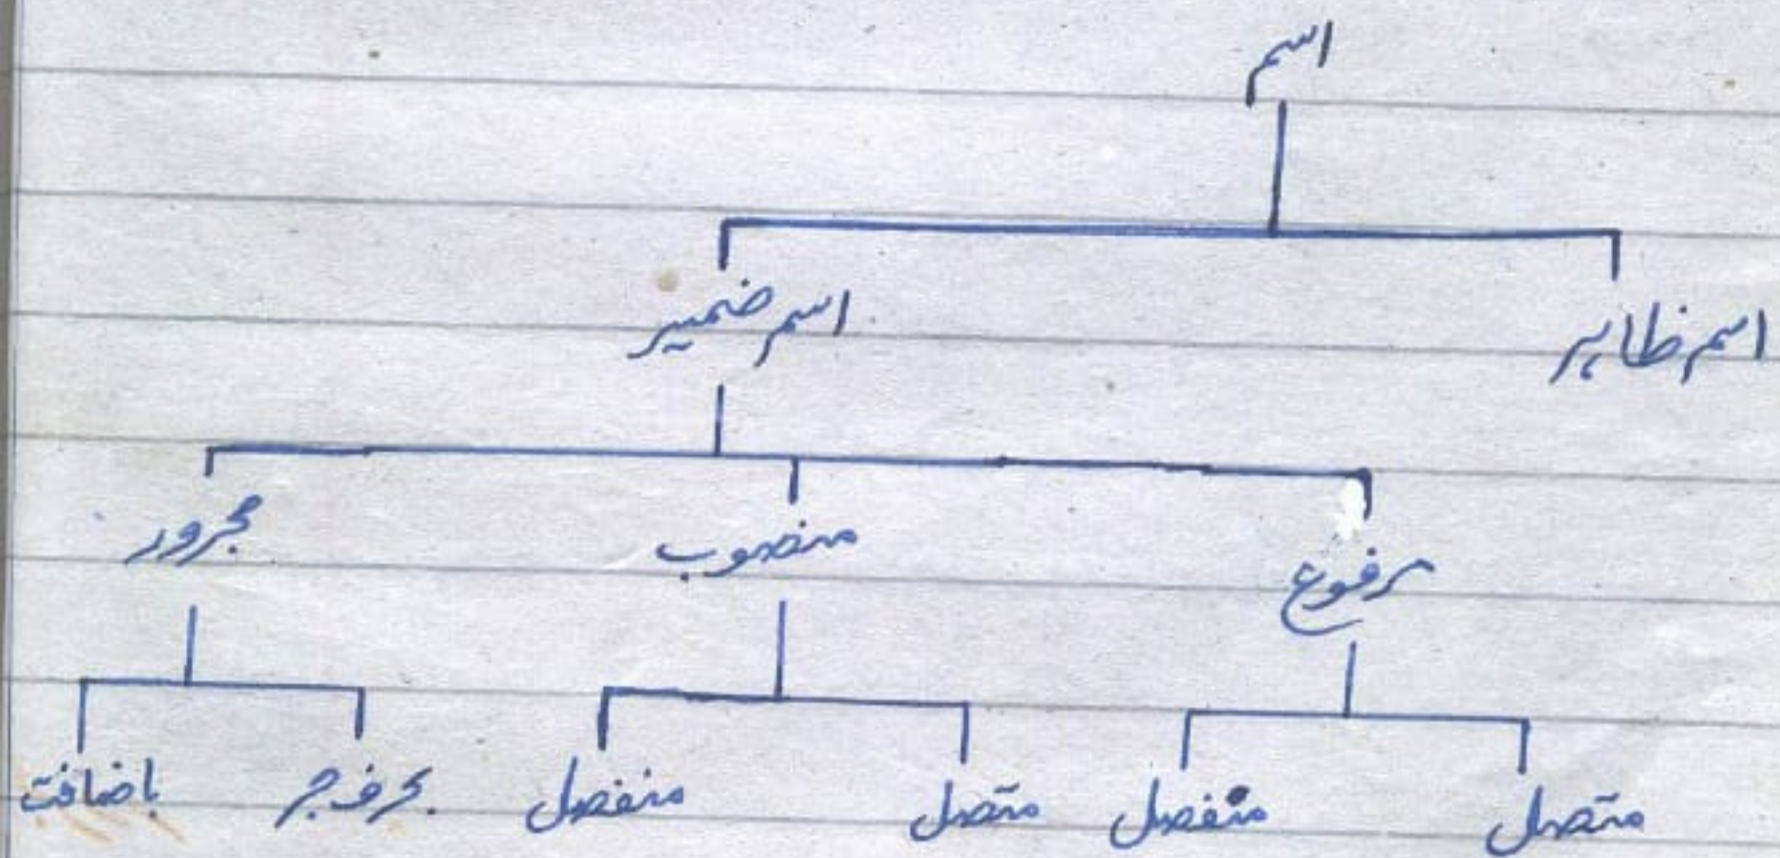 اسم
اسم ظاہر
اسم ضمیر
مرفوع
منصوب
مجرور
متصل
منفصل
متصل
منفصل
بحرف جر
باضافت